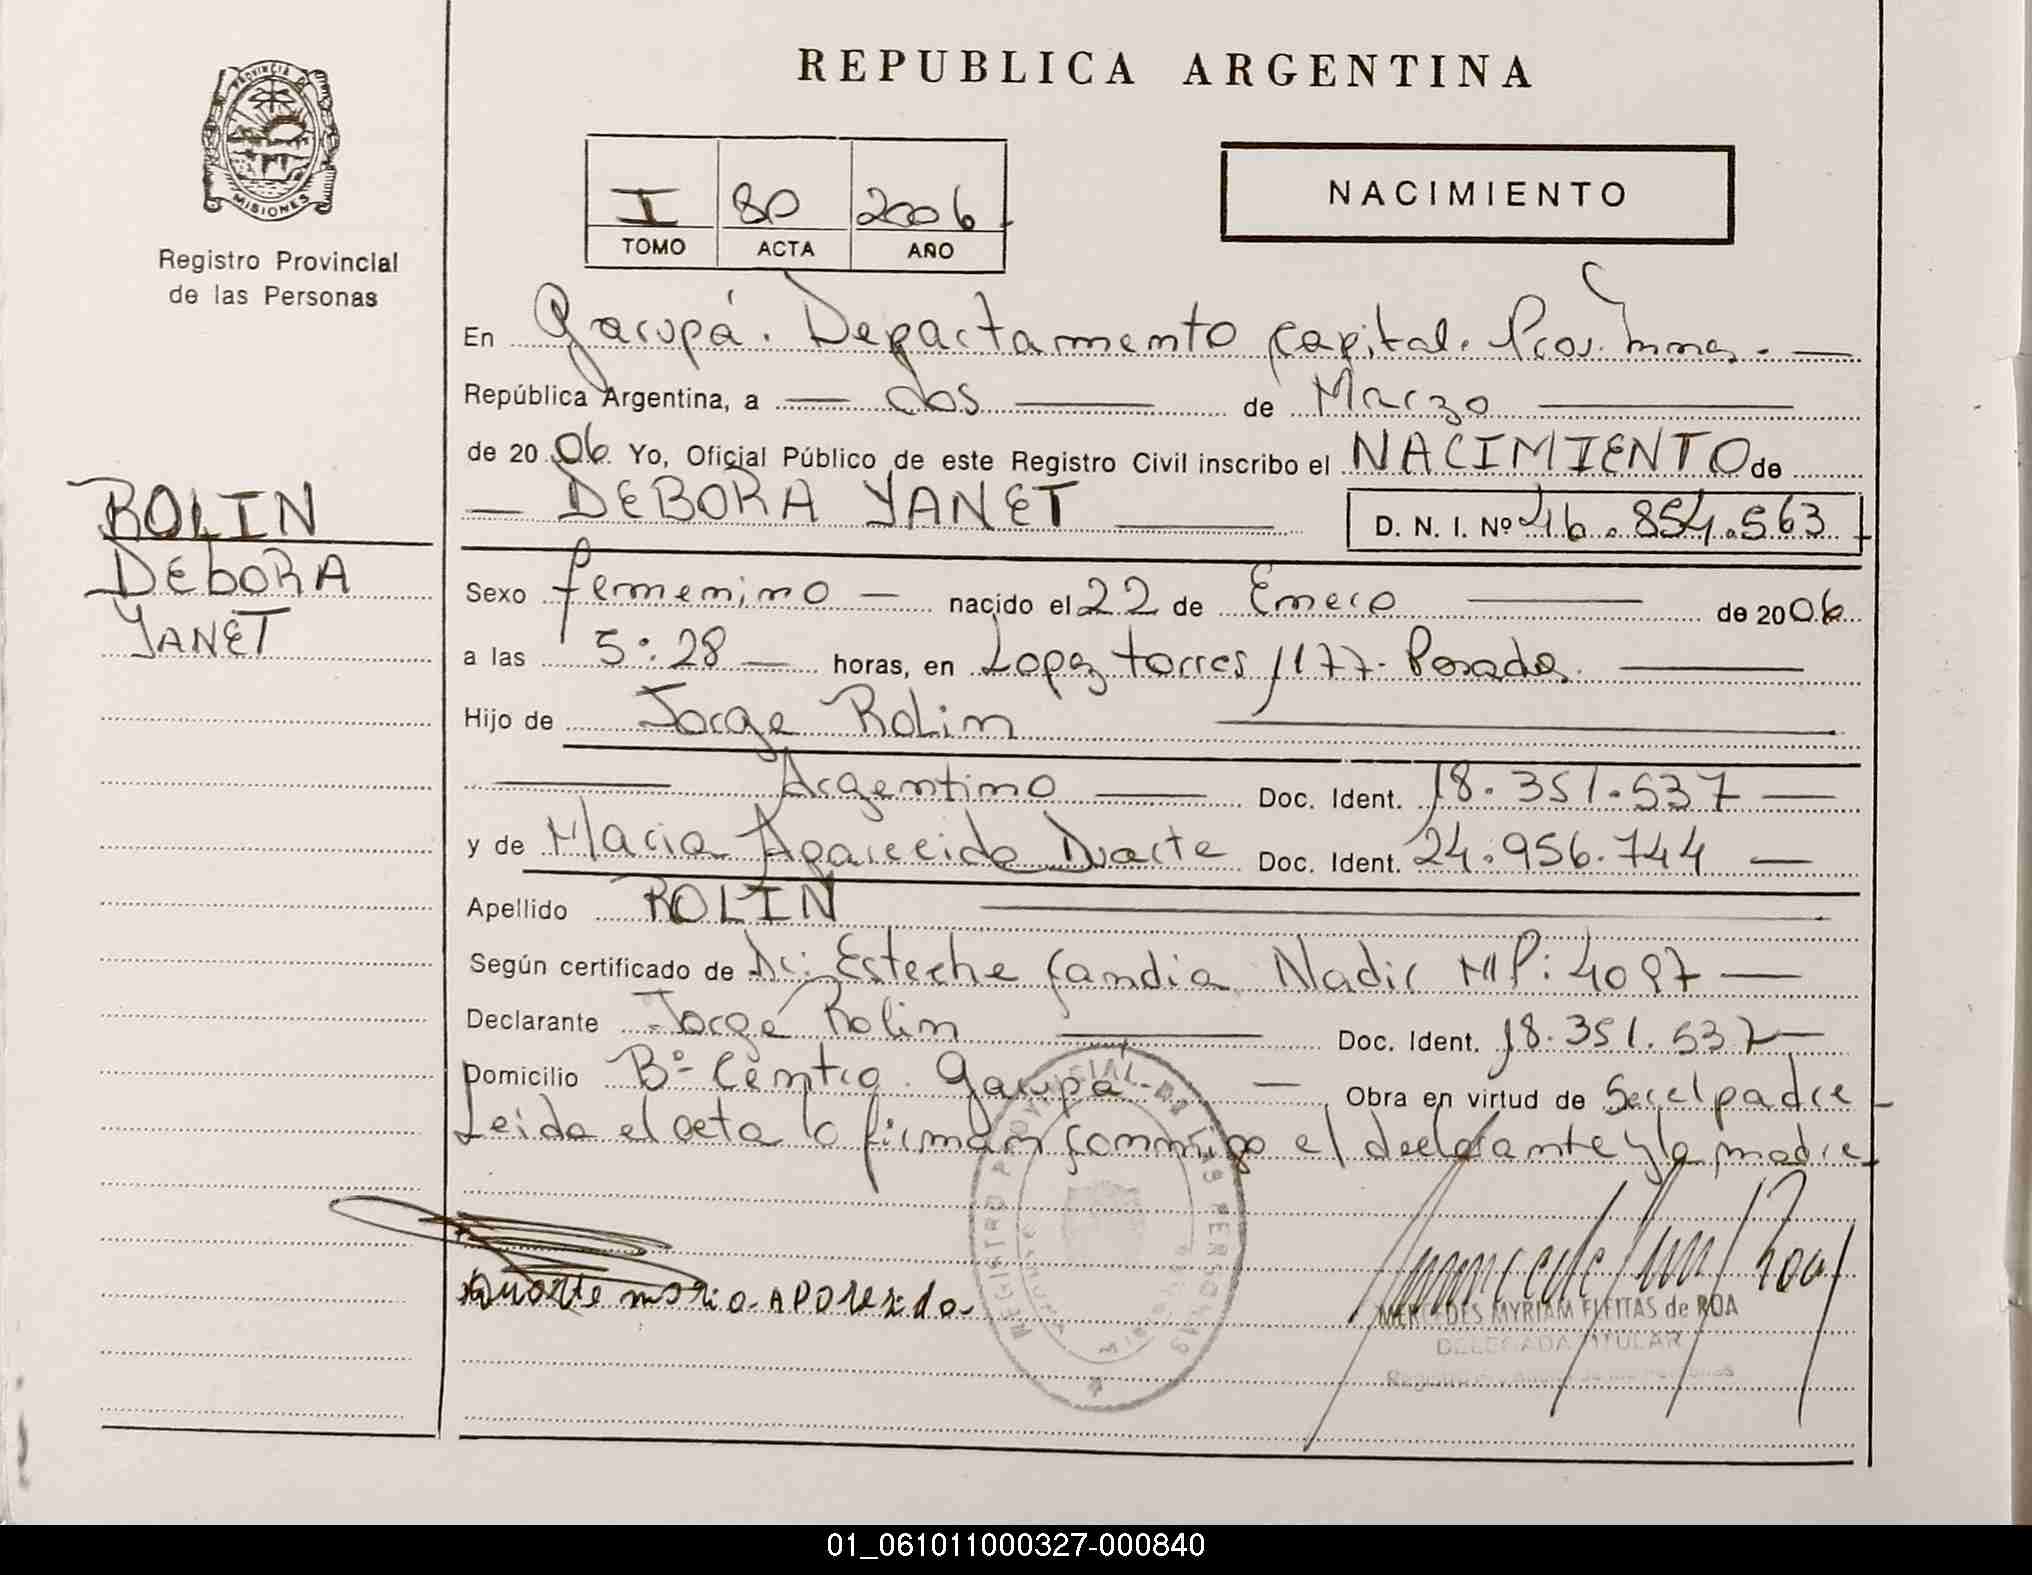 REPUBLICA ARGENTINA
PROVINCIA DE
MISIONES
Registro Provincial
de las Personas
I 80 2006
TOMO ACTA AÑO
NACIMIENTO
En Garupá. Departamento Capital. Prov. Mnes. —
República Argentina, a — dos — de Marzo —
de 20 06 Yo, Oficial Público de este Registro Civil inscribo el NACIMIENTO de
— DEBORA YANET — D. N. I. Nº 46.854.563
ROLIN
DEBORA
YANET
Sexo femenino — nacido el 22 de Enero — de 2006
a las 5:28 — horas, en Lopez torres 1177. Posadas. —
Hijo de Jorge Rolin —
— Argentino — Doc. Ident. 18.351.537 —
y de Maria Aparecida Duarte Doc. Ident. 24.956.744 —
Apellido ROLIN —
Según certificado de Dr: Esteche Candia Nadir MP: 4097 —
Declarante Jorge Rolin — Doc. Ident. 18.351.537 —
Domicilio Bº Centro. Garupá — Obra en virtud de Ser el padre
Leida el acta lo firman conmigo el declarante y la madre
Duarte maria APArecida
REGISTRO PROVINCIAL DE LAS PERSONAS
MERCEDES MYRIAM FLEITAS de ROA
DELEGADA TITULAR
01_061011000327-000840